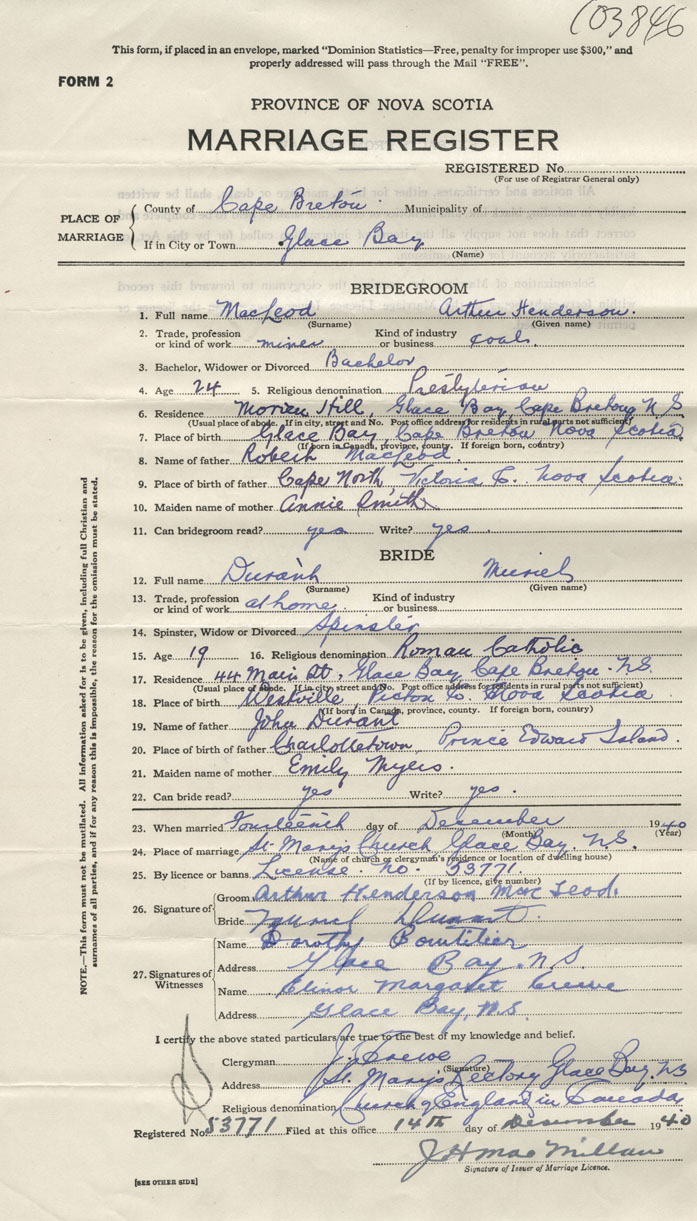 103846
This form, if placed in an envelope, marked "Dominion Statistics—Free, penalty for improper use $300," and
properly addressed will pass through the Mail "FREE".
FORM 2
PROVINCE OF NOVA SCOTIA
MARRIAGE REGISTER
REGISTERED No.
(For use of Registrar General only)
PLACE OF MARRIAGE
County of Cape Breton Municipality of
If in City or Town Glace Bay
(Name)
BRIDEGROOM
1. Full name MacLeod Arthur Henderson.
(Surname) (Given name)
2. Trade, profession or kind of work miner Kind of industry or business coal.
3. Bachelor, Widower or Divorced Bachelor
4. Age 24 5. Religious denomination Presbyterian
6. Residence Morien Hill, Glace Bay, Cape Breton, N.S.
(Usual place of abode. If in city, street and No. Post office address for residents in rural parts not sufficient)
7. Place of birth Glace Bay, Cape Breton Nova Scotia.
(If born in Canada, province, county. If foreign born, country)
8. Name of father Robert MacLeod.
9. Place of birth of father Cape North Victoria Co. Nova Scotia.
10. Maiden name of mother Annie Smith
11. Can bridegroom read? yes Write? yes
BRIDE
12. Full name Durant Muriel
(Surname) (Given name)
13. Trade, profession or kind of work at home Kind of industry or business
14. Spinster, Widow or Divorced Spinster
15. Age 19 16. Religious denomination Roman Catholic
17. Residence 44 Main St, Glace Bay, Cape Breton. N.S.
(Usual place of abode. If in city, street and No. Post office address for residents in rural parts not sufficient)
18. Place of birth Westville, Pictou Co. Nova Scotia
(If born in Canada, province, county. If foreign born, country)
19. Name of father John Durant
20. Place of birth of father Charlottetown, Prince Edward Island.
21. Maiden name of mother Emily Myers.
22. Can bride read? yes Write? yes.
23. When married Fourteenth day of December 1940
(Month) (Year)
24. Place of marriage St. Mary's Church Glace Bay, N.S.
(Name of church or clergyman's residence or location of dwelling house)
25. By licence or banns License. no. 53771.
(If by licence, give number)
26. Signature of
Groom Arthur Henderson MacLeod.
Bride Muriel Durant.
27. Signatures of Witnesses
Name Dorothy Boutilier
Address Glace Bay. N.S.
Name Elinor Margaret Crewe
Address Glace Bay, N.S.
I certify the above stated particulars are true to the best of my knowledge and belief.
Clergyman J. Crewe
(Signature)
Address St. Mary's Rectory Glace Bay. N.S
Religious denomination Church of England in Canada
Registered No. 53771 Filed at this office 14th day of December 1940
J H MacMillan
Signature of Issuer of Marriage Licence.
[SEE OTHER SIDE]
NOTE.—This form must not be mutilated. All information asked for is to be given, including full Christian and
surnames of all parties, and if for any reason this is impossible, the reason for the omission must be stated.